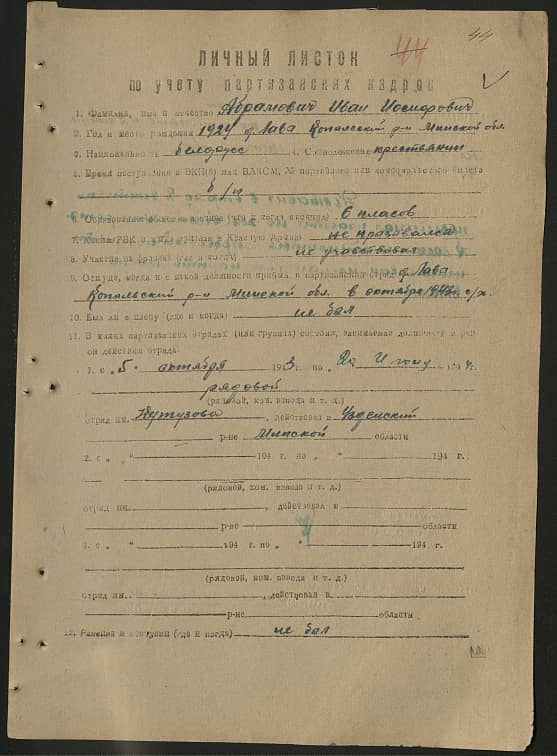 44 44
ЛИЧНЫЙ ЛИСТОК
по учету партизанских кадров
1. Фамилия, имя и отчество Абрамович Иван Иосифович
2. Год и место рождения 1927 д. Лава Копыльский р-н Минской обл.
3. Национальность белорусс 4. Соцположение крестьянин
5. Время поступления в ВКП(б) или ВЛКСМ, № партийного или комсомольского билета
б/п
6. Образование общее и военное (что и когда окончил) 6 класов
7. Каким РВК и когда призван в Красную Армию не призывался
8. Участие на фронтах (где и когда) не учавствовал
9. Откуда, когда и с какой должности прибыл в партизанский отряд д. Лава
Копыльский р-н Минской обл. в октябре 1943г. с/х.
10. Был ли в плену (где и когда) не был
11. В каких партизанских отрядах (или группах) состоял, занимаемые должности и рай-
он действия отряда:
1. с „5. октября 1943г. по 194 г.
рядовой
(рядовой, ком. взвода и т. д.)
отряд им. Кутузова, действовал в Узденский
р-не Минской области
2. с „ “ 194 г. по „ “ 194 г.
(рядовой, ком. взвода и т. д.)
отряд им. , действовал в
р-не области
3. с „ “ 194 г. по „ “ 194 г.
(рядовой, ком. взвода и т. д.)
отряд им. , действовал в
р-не области
12. Ранения и контузии (где и когда) не был